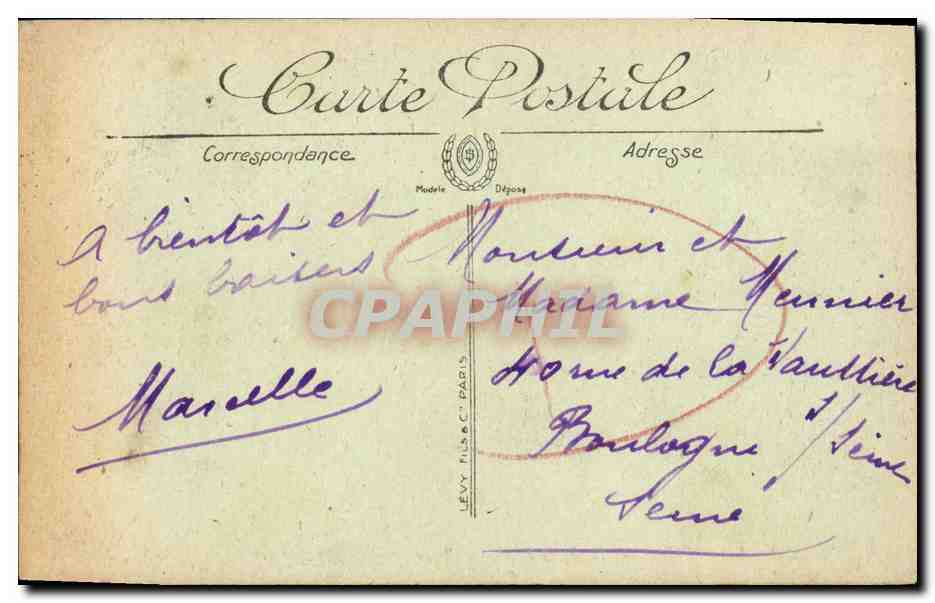 Carte Postale
Correspondance
Adresse
Modèle Déposé
A bientôt et
bons baisers
Marcelle
LÉVY FILS & Cie PARIS
Monsieur et
Madame Meunier
40 rue de la Vauthière
Boulogne s/Seine
Seine
CPAPHIL